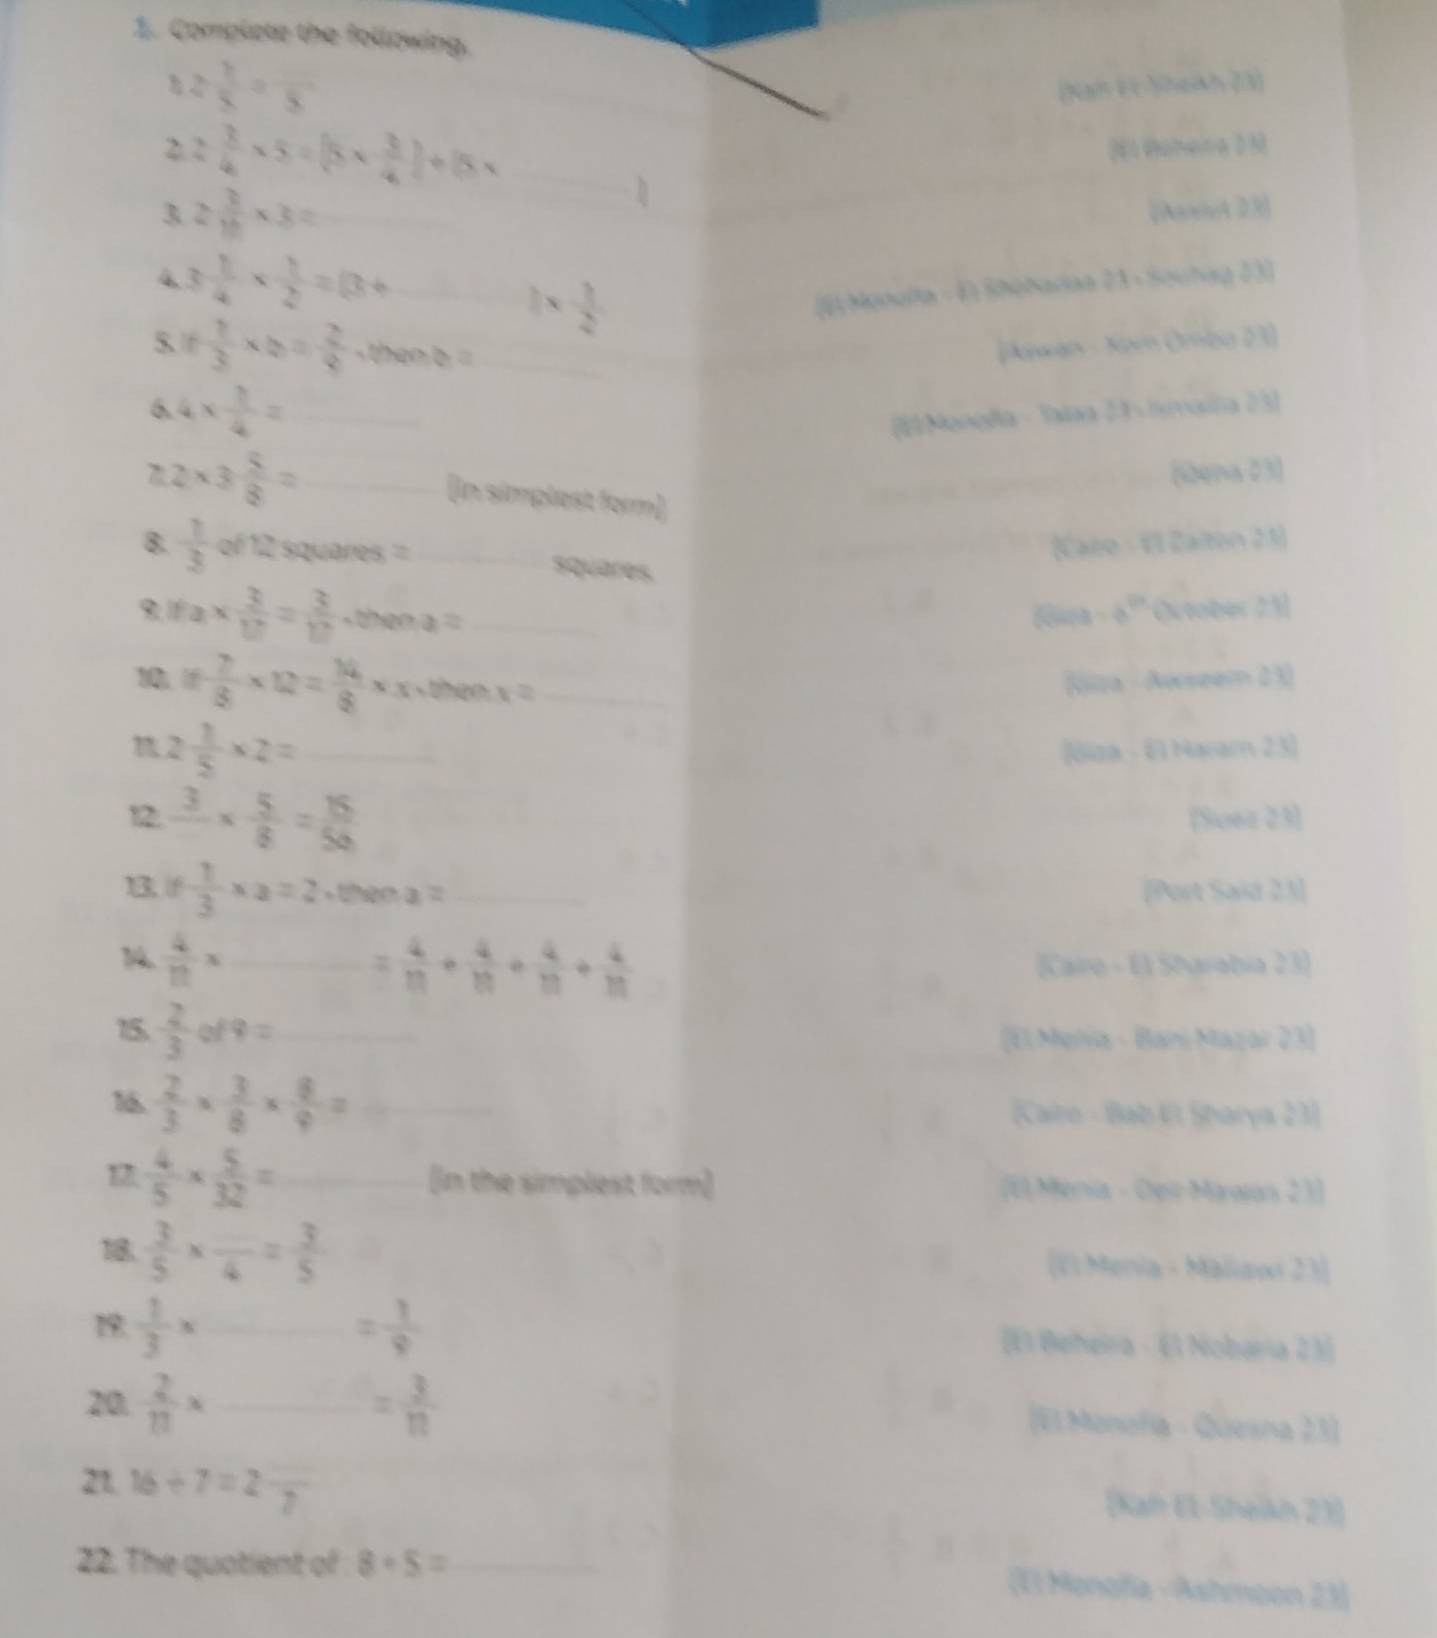 1. Complete the following.
1. 2 1/5 = /5 (Kafr El-Sheikh 23)
2. 2 3/4 × 5 = (5 × 3/4) + (5 × ____) (El Beheira 23)
3. 2 3/10 × 3 = ____ (Assiut 23)
4. 3 1/4 × 1/2 = (3 + ____) × 1/2 (El Monofia - El Shohadaa 23 - Souhag 23)
5. If 1/3 × b = 2/9 , then b = ____ (Aswan - Kom Ombo 23)
6. 4 × 1/4 = ____ (El Monofia - Talaa 23 - Ismailia 23)
7. 2 × 3 5/8 = ____ (in simplest form) (Qena 23)
8. 1/3 of 12 squares = ____ squares. (Cairo - El Zaiton 23)
9. If a × 3/17 = 3/17 , then a = ____ (Giza - 6th October 23)
10. If 7/8 × 12 = 14/8 × x , then x = ____ (Giza - Awseem 23)
11. 2 1/5 × 2 = ____ (Giza - El Haram 23)
12. 3/ × 5/8 = 15/56 (Suez 23)
13. If 1/3 × a = 2 , then a = ____ (Port Said 23)
14. 4/11 × ____ = 4/11 + 4/11 + 4/11 + 4/11 (Cairo - El Sharabia 23)
15. 2/3 of 9 = ____ (El Menia - Bani Mazar 23)
16. 2/3 × 3/8 × 8/9 = ____ (Cairo - Bab El Sharya 23)
17. 4/5 × 5/32 = ____ (in the simplest form) (El Menia - Deir Mawas 23)
18. 3/5 × /4 = 3/5 (El Menia - Mallawi 23)
19. 1/3 × ____ = 1/9 (El Beheira - El Nobaria 23)
20. 2/11 × ____ = 3/11 (El Monofia - Quesna 23)
21. 16 ÷ 7 = 2 /7 (Kafr El-Sheikh 23)
22. The quotient of : 8 ÷ 5 = ____ (El Monofia - Ashmoon 23)